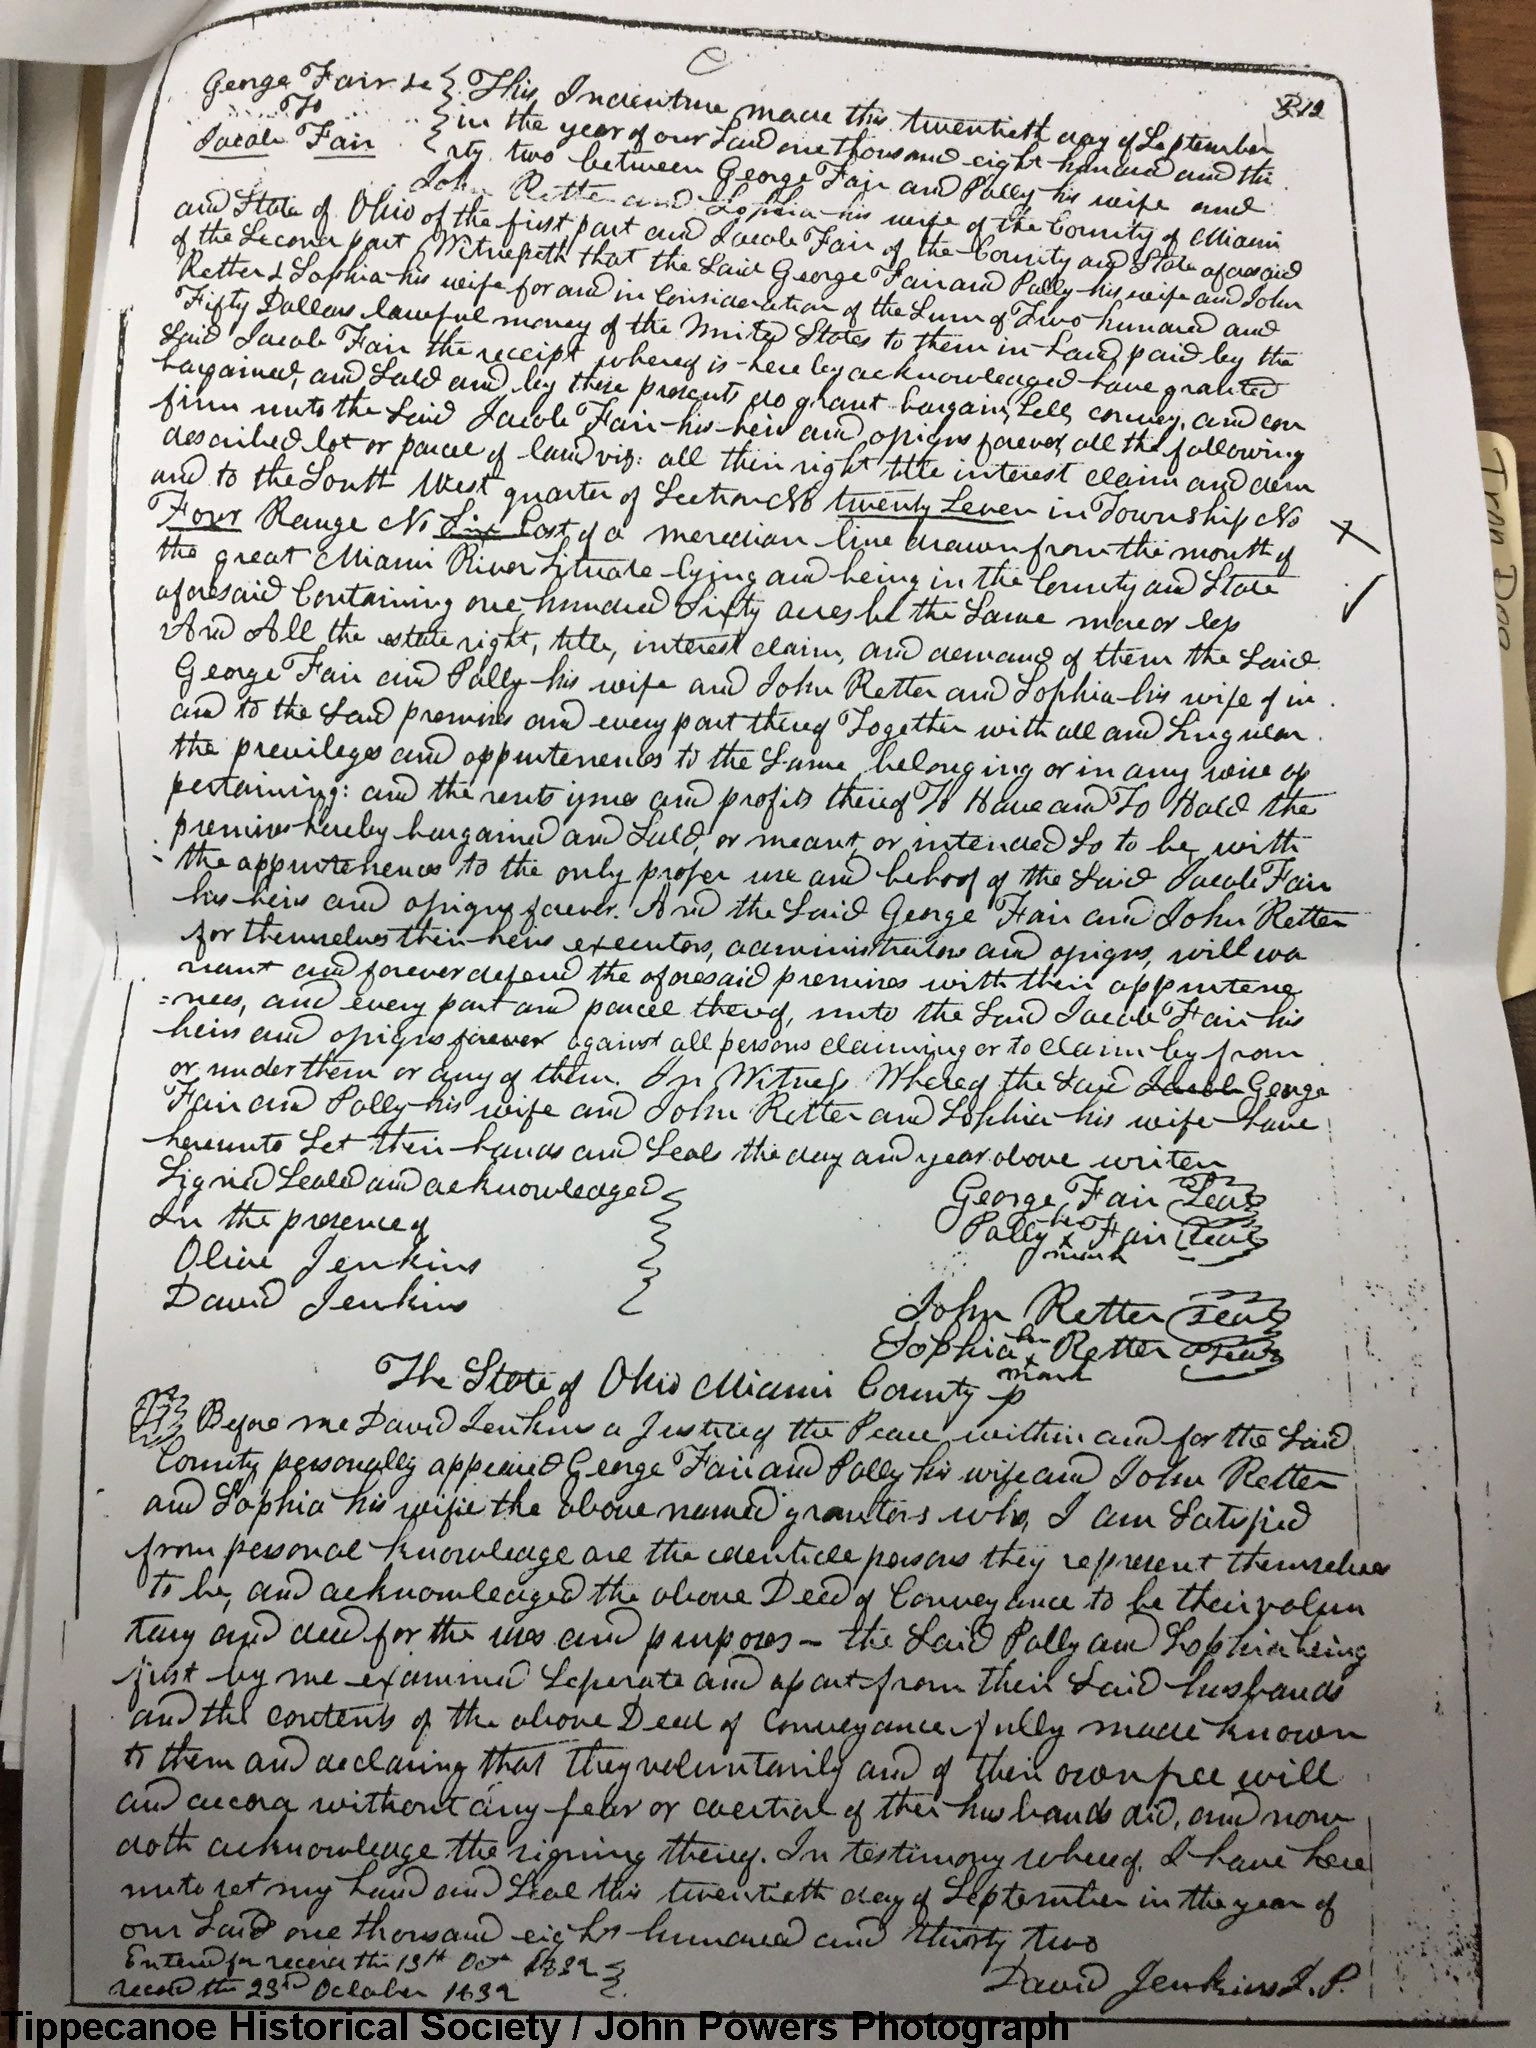 George Fair &c This Indenture made this twentieth day of September
312
To
Jacob Fair
in the year of our Lord one thousand eight hundred and thi
rty two between George Fair and Polly his wife and
John Retter and Sophia his wife of the County of Miami
and State of Ohio of the first part and Jacob Fair of the County and State aforesaid
of the Second part Witnesseth that the Said George Fair and Polly his wife and John
Retter & Sophia his wife for and in Consideration of the Sum of Two hundred and
Fifty Dollars lawful money of the United States to them in hand paid by the
Said Jacob Fair the receipt whereof is hereby acknowledged have granted
bargained, and Sold and by these presents do grant bargain, Sell, convey, and con
firm unto the Said Jacob Fair his heirs and assigns forever, all the following
described lot or parcel of land viz: all their right title interest claim and dem
and to the South West quarter of Section No twenty Seven in Township No
Four Range No Six East of a meredian line drawn from the mouth of
the great Miami River Situate lying and being in the County and State
aforesaid Containing one hundred Sixty acres be the Same more or less
And All the estate right, title, interest claim, and demand of them the Said
George Fair and Polly his wife and John Retter and Sophia his wife of in
and to the Said premises and every part thereof Together with all and Singular
the previleges and appurtenences to the Same belonging or in any wise ap
pertaining: and the rents issues and profits thereof To Have and To Hold the
premises hereby bargained and Sold, or meant, or intended So to be, with
the appurtenences to the only proper use and behoof of the Said Jacob Fair
his heirs and assigns forever. And the Said George Fair and John Retter
for themselves their heirs executors, administrators and assigns, will wa
rrant and forever defend the aforesaid premises with their appurtene
=nces, and every part and parcel thereof, unto the Said Jacob Fair his
heirs and assigns forever against all persons claiming or to claim by from
or under them or any of them. In Witness Whereof the Said Jacob George
Fair and Polly his wife and John Retter and Sophia his wife have
hereunto Set their hands and Seals the day and year above writen
Signed Sealed and acknowledged
In the presence of
Olive Jenkins
David Jenkins
George Fair Seal
her
Polly x Fair Seal
mark
John Retter Seal
her
Sophia x Retter Seal
mark
The State of Ohio Miami County
Before me David Jenkins a Justice of the Peace within and for the Said
County personally appeared George Fair and Polly his wife and John Retter
and Sophia his wife the above named grantors who, I am Satisfied
from personal knowledge are the identicle persons they represent themselves
to be, and acknowledged the above Deed of Conveyance to be their volun
tary and deed for the uses and purposes – the Said Polly and Sophia being
first by me examined Seperate and apart from their Said husbands
and the contents of the above Deed of Conveyance fully made known
to them and declaring that they voluntarily and of their own free will
and accord without any fear or coertion of their husbands did, and now
doth acknowledge the signing thereof. In testimony whereof, I have here
unto set my hand and Seal this twentieth day of September in the year of
our Lord one thousand eight hundred and thirty two
David Jenkins J. P.
Entered for record this 13th Oct 1832
record the 23rd October 1832
Tippecanoe Historical Society / John Powers Photograph